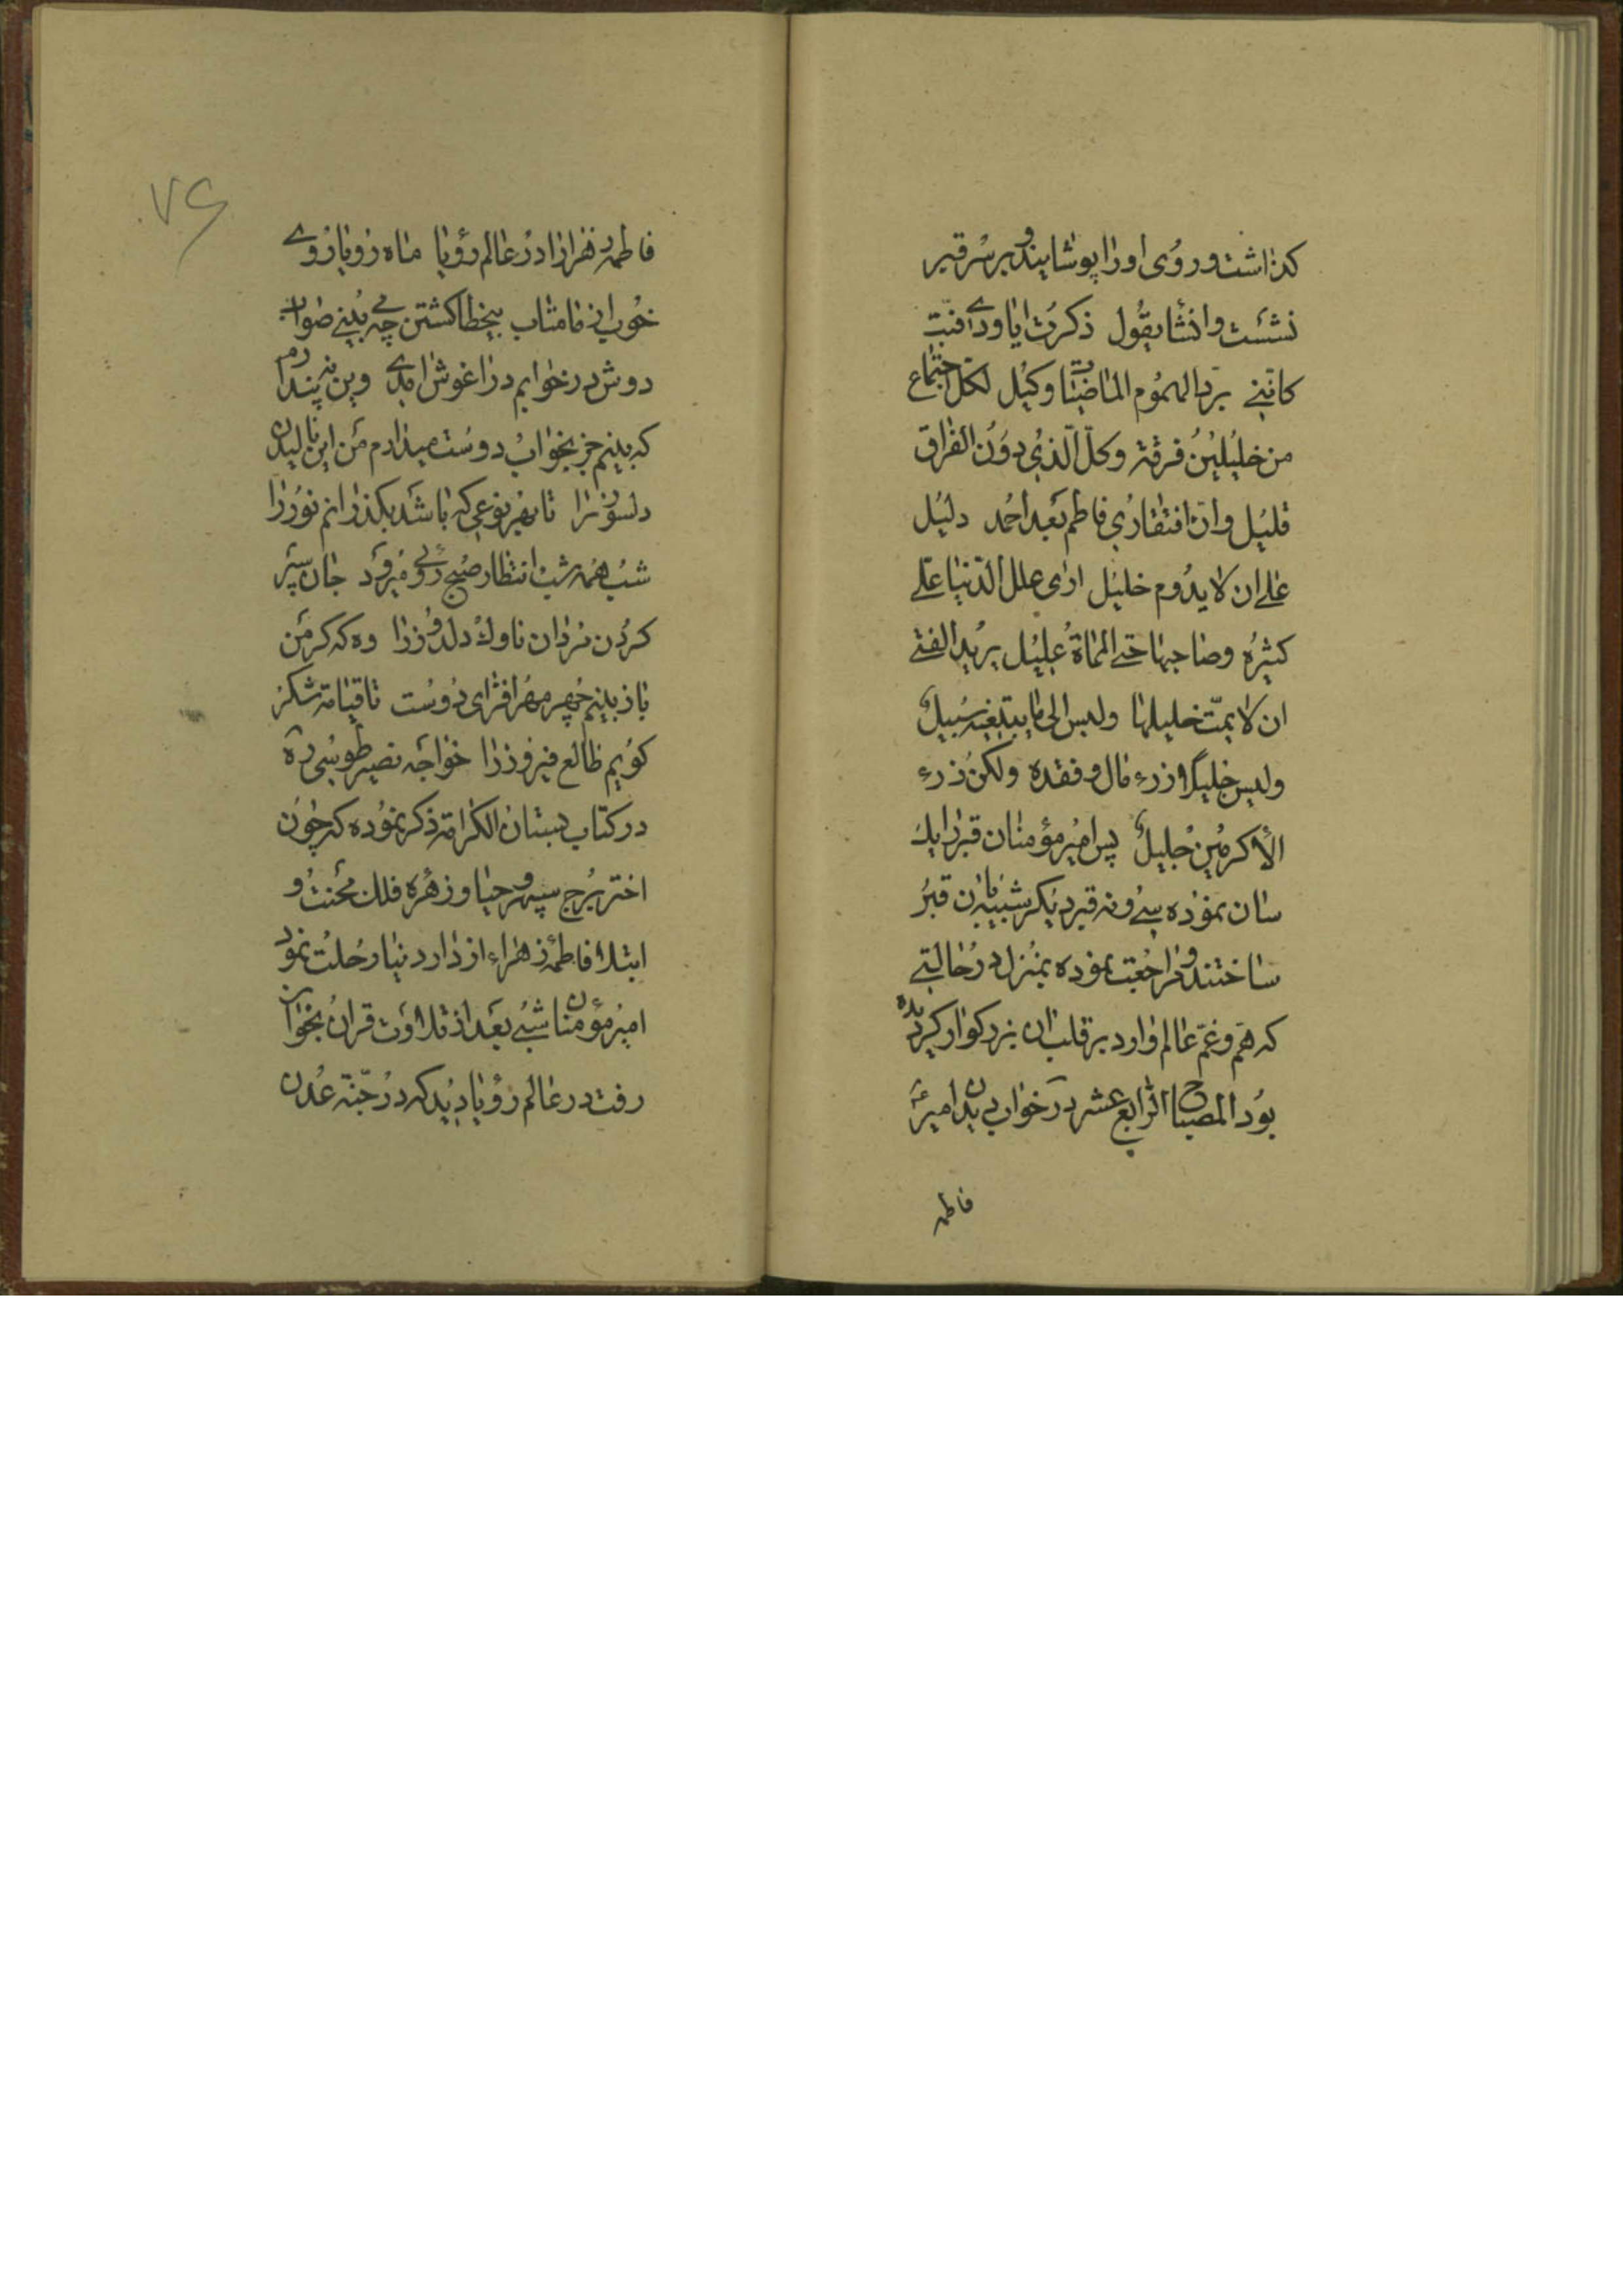 کذاشت و روی اورا پوشانید و بر سر قبر
نشست و انشا یقول ذکرت ابا ودی فبت
کاننی برد الهموم الماضیات وکیل لکل اجتماع
من خلیلین فرقة وکل الذی دون الفراق
قلیل وان افتقاری فاطم بعد احمد دلیل
علی ان لا یدوم خلیل اری علل الدنیا علی
کثیره وصاحبها حتی المماة علیل یرید الفتی
ان لا یمت خلیلها ولیس الی ما یبتغیه سبیل
ولیس خلیلا زرء مال و فقده ولکن زرء
الاکرمین جلیل پس امیر مؤمنان قبر را یک
سان نموده سی و نه قبر دیکر شبیه بان قبر
ساختند و مراجعت نموده بمنزل در حالتی
که هم و غم عالم وارد بر قلب ان بزرکوار کردیده
بود المصباح الرابع عشر در خواب دیدن امیر ع
فاطمه
۷۶
فاطمه زهرا را در عالم رؤیا ماه رویا روی
خوب از ما متاب بیخطا کشتن چه می بینی صواب
دوش در خوابم در اغوش امدی وین نه پندارم
که بینم جز بخواب دوست میدارم من این نالیدن
دلسوز را تا بهر نوعی که باشد بکذرانم روز را
شب همه شب انتظار صبح روئی میرود جان سپر
کردن مردان ناوک دلدوز را وه که کر من
باز بینم چهر مهر افزای دوست تا قیامت شکر
کویم طالع فیروز را خواجه نصیر طوسی ره
در کتاب بستان الکرامة ذکر نموده که چون
اختر برج سپهر حیا و زهره فلک محنت و
ابتلا فاطمه زهراء از دار دنیا رحلت نمود
امیر مؤمنان شبی بعد از تلاوت قران بخواب
رفت در عالم رؤیا دید که در جنة عدن